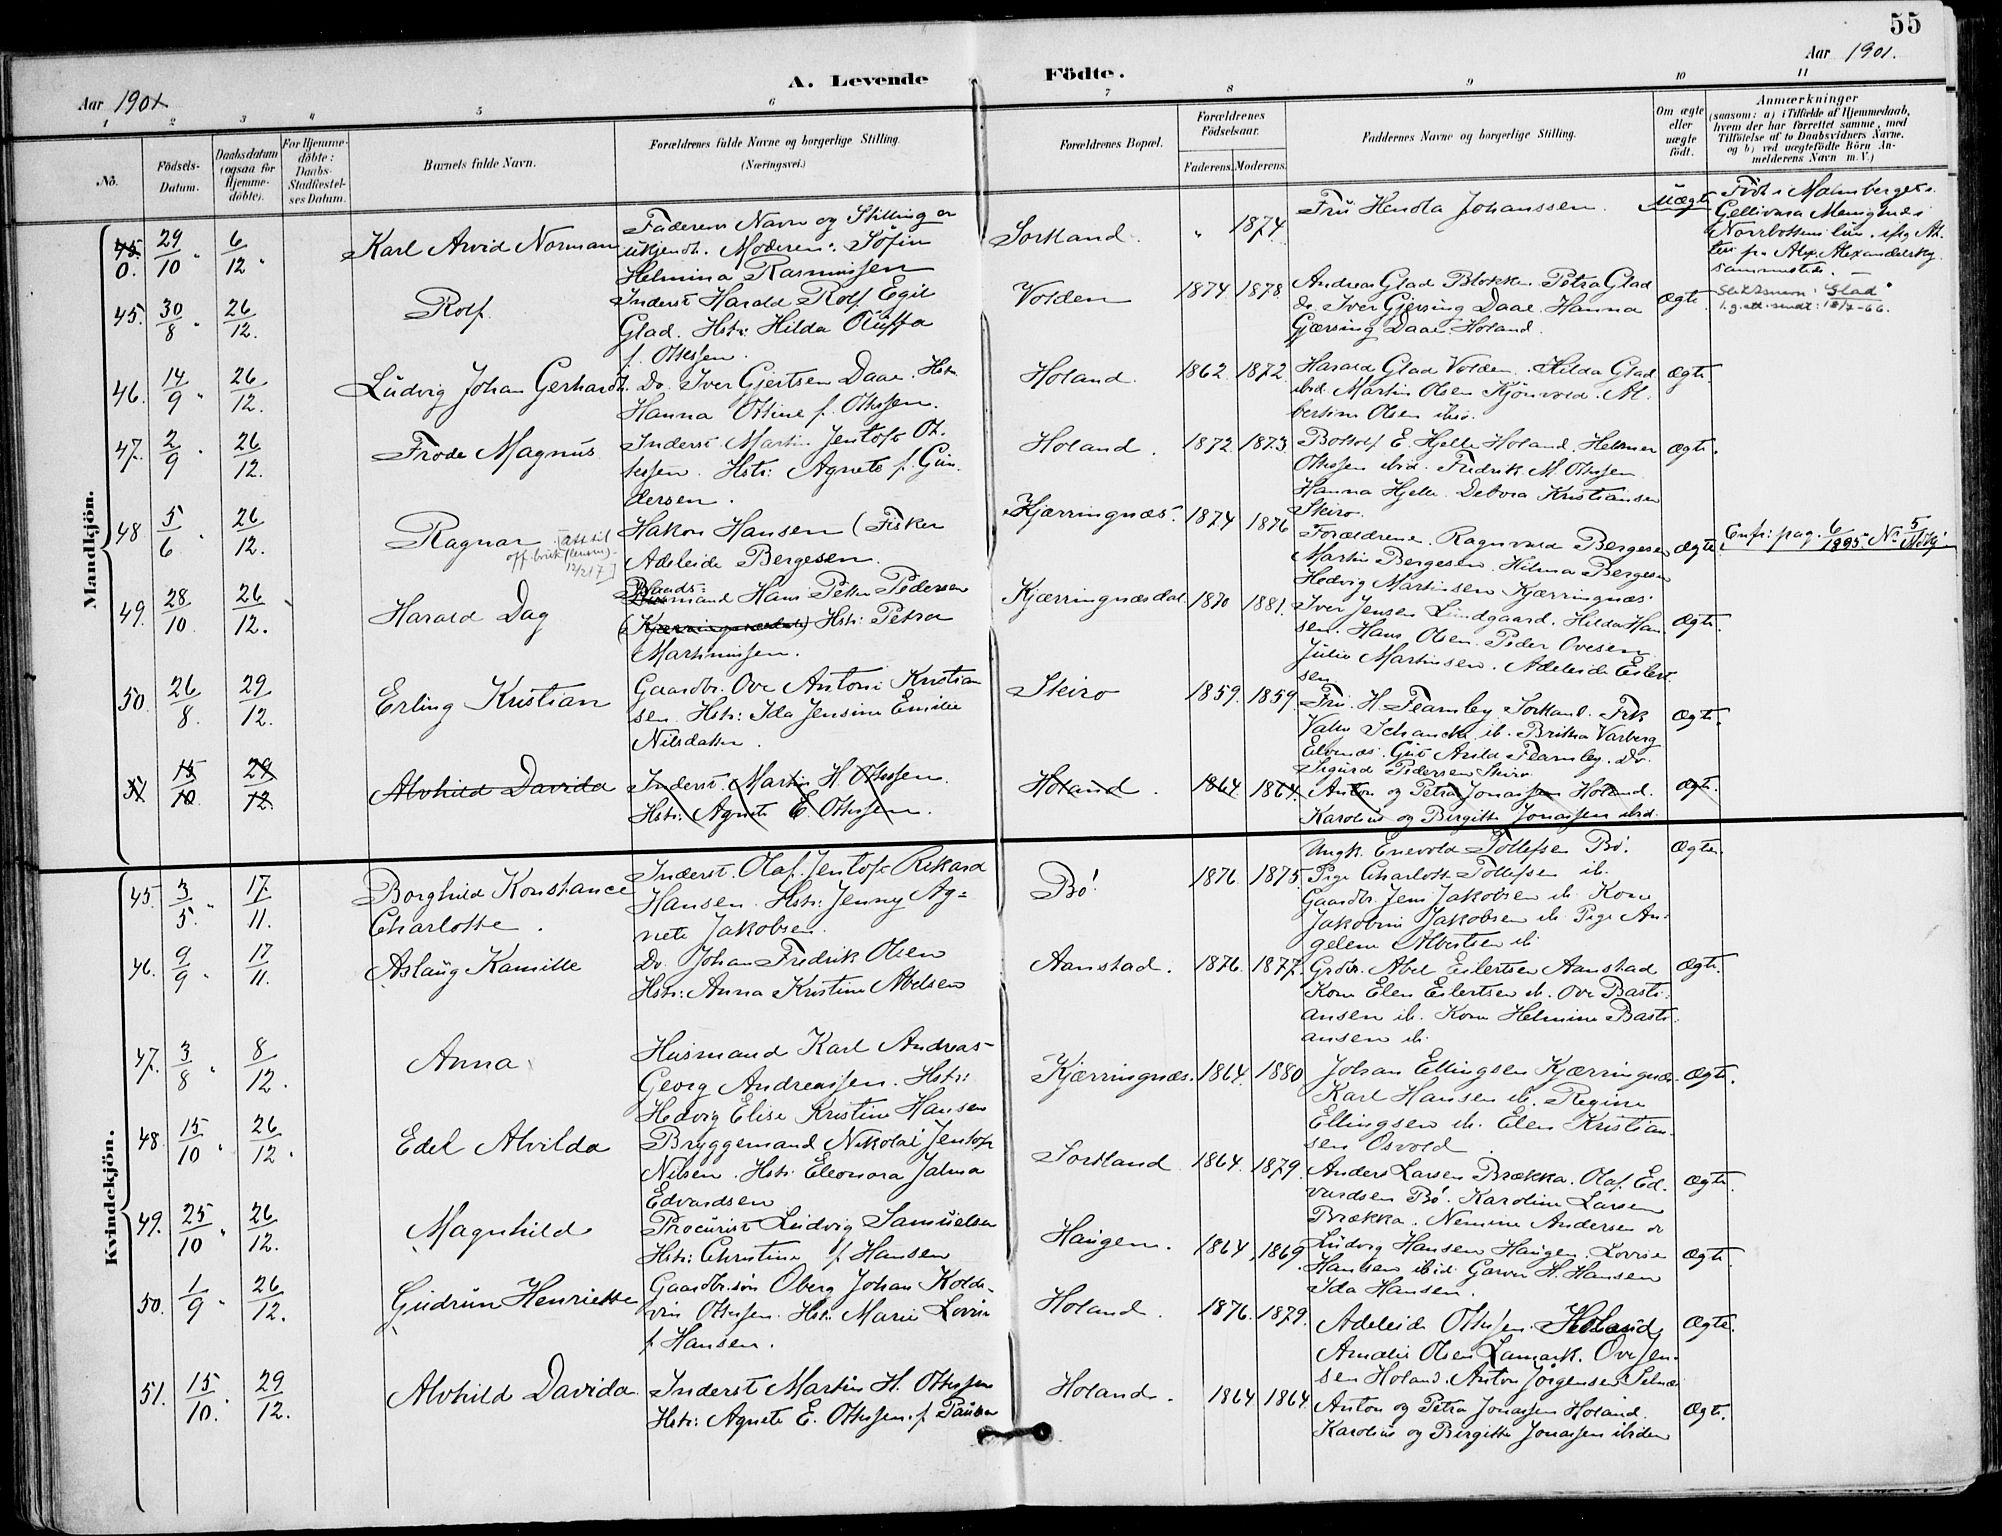 55
Aar 1901
A. Levende Födte.
Aar 1901.
1 2 3 4 5 6 7 8 9 10 11
No.
Födsels-Datum.
Daabsdatum (ogsaa for Hjemme-döbte).
For Hjemme-döbte: Daabs-Stadfæstel-ses Datum.
Barnets fulde Navn.
Forældrenes fulde Navne og borgerlige Stilling.
(Næringsvei.)
Forældrenes Bopæl.
Forældrenes Födselsaar.
Faderens. Moderens.
Faddernes Navne og borgerlige Stilling.
Om ægte eller uægte födt.
Anmærkninger
(saasom: a) i Tilfælde af Hjemmedaab,
hvem der har forrettet samme, med
Tilföielse af to Daabsvidners Navne.
og b) ved uægtefödte Börn An-
melderens Navn m. V.)
Mandkjön.
45 0. 29/10 6/12 Karl Arvid Norman
Faderens Navn og Stilling er
ukjendt. Moderen: Sofin
Helmina Rasmussen
Sortland. " 1874
Fru Henda Johanssen. Uægte
Födt i Malmberget i
Gellivara Menighed i
Norrbottens län. ifg At-
test fr. Alex. Alexandersky
sammesteds.
45. 30/8 26/12. Rolf
Inderst Harald Rolf Egil
Glad. Hstr: Hilda Ruffa
f. Ottessen.
Volden 1874 1878
Andreas Glad Blokken Petra Glad
do Iver Gjersing Daae. Hanna
Gjærsing Daae. Holand.
Ægte.
Slektsnavn: Glad
46. 14/9 26/12. Ludvig Johan Gerhardt.
Do. Iver Gjertsen Daae. Hstr.
Hanna Ottine f. Ottessen.
Holand. 1862 1872
Harald Glad Volden. Hilda Glad
ibid. Martin Olsen Kjönvold. Al-
bertine Olsen ibid.
Ægte.
47. 2/9 26/12. Frode Magnus
Inderst Martin Jentoft Ot-
tessen. Hstr: Agnete f. Gun-
dersen.
Holand. 1872. 1873.
Bottolf E. Hjelle Holand. Helmer
Ottessen ibid. Fredrik M. Ottessen
Hanna Hjelle. Debora Kristiansen
Skiro.
Ægte.
48 5/6 26/12. Ragnar
Hakon Hansen (Fisker
Adeleide Bergesen.
Kjærringnæs. 1874 1876
Forældrene. Ragnvald Bergesen
Martin Bergesen. Hilma Bergesen
Hedvig Martinsen Kjærringnæs.
Ægte.
Cnfr: pag. 6/1895 No 5
49. 28/10 26/12. Harald Dag
Husmand Hans Peter Pedersen
Hstr: Petra
Martinussen.
Kjærringnæsdal 1870 1881.
Iver Jensen Lundgaard. Hilda Han-
sen. Hans Olsen. Peder Ovesen.
Julie Martinsen. Adeleide Eilert-
sen.
Ægte.
50. 26/8. 29/12. Erling Kristian
Gaardbr. Ove Antoni Kristian
sen Hstr: Ida Jensine Emilie
Nilsdatter.
Skiro 1859. 1859.
Fru H. Fearnley Sortland. Frk
Valm Schancke ib. Brikka Varberg
Elvenes. Gut Arild Fearnley. do
Sigurd Pedersen Skiro.
Ægte.
51 15/10 29/12 Alvhild Davida
Inderst. Martin H. Ottessen.
Hstr: Agnete E. Ottessen.
Holand. 1864. 1864.
Anton og Petra Jonassen Holand.
Karolius og Birgitte Jonassen ibid.
Ægte.
Kvindekjön.
45. 3/5. 17/11. Borghild Konstance
Charlotte.
Inderst. Olaf Jentoft Rikard
Hansen. Hstr: Jenny Ag-
nete Jakobsen.
Bö. 1876 1875.
Ungk. Enevold Tollefsen Bö.
Pige Charlotte Tollefsen ib.
Gaardbr. Jens Jakobsen ib. Kone
Jakobine Jakobsen ib. Pige An-
gelene Albertsen ib.
Ægte.
46. 9/9 17/11. Aslaug Kamille
Do. Johan Fredrik Olsen
Hstr: Anna Kristine Abelsen
Aanstad. 1876. 1877.
Grdbr. Abel Eilertsen Aanstad
Kone Elen Eilertsen ib. Ove Basti-
ansen ib. Kone Helmine Basti-
ansen ib.
Ægte.
47. 3/8 8/12. Anna
Husmand Karl Andreas
Georg Andreassen. Hstr:
Hedvig Elise Kristine Hansen
Kjærringnæs. 1864. 1880
Johan Ellingsen Kjærringnæs
Karl Hansen ib. Regine
Ellingsen ib. Elen Kristian-
sen Osvold
Ægte.
48. 15/10 26/12. Edel Alvilda
Bryggemand Nikolai Jentoft
Nilsen. Hstr: Eleonora Jalma
Edvardsen
Sortland 1864. 1879.
Anders Larsen Brækka. Olaf Ed-
vardsen Bö. Karoline Larsen
Brækka. Nemine Andersen
Ægte.
49. 25/10 26/12. Magnhild
Procurist Ludvig Samuelsen
Hstr: Christine f Hansen
Haugen. 1864 1869.
Ludvig Hansen Haugen. Lovise
Hansen ibid. Garver H. Hansen
Ida Hansen.
Ægte.
50. 1/9 26/12. Gudrun Henriette
Gaardbr.sön Oberg Johan Kolde-
vin Ottessen. Hstr: Marie Lovise
f Hansen.
Holand. 1876. 1879.
Adeleide Ottessen. Holand
Amalie Olsen Lamark. Ove Jen-
sen Holand. Anton Jörgensen Selnes
Ægte.
51. 15/10. 29/12. Alvhild Davida
Inderst Martin H. Ottessen
Hstr: Agnete E. Ottessen. f
Holand. 1864 1864.
Anton og Petra Jonassen Holand.
Karolius og Birgitte Jonassen ibidem
Ægte.